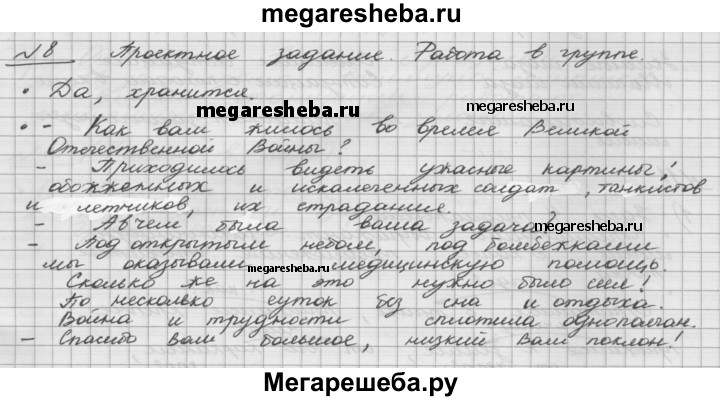 megaresheba.ru
№8 Проектное задание. Работа в группе.
• Да, хранится.
megaresheba.ru
megaresheba.ru
• - Как вам жилось во время Великой
Отечественной Войны?
- Приходилось видеть ужасные картины!
обожженных и искалеченных солдат, танкистов
и летчиков, их страдания.
- А в чем была ваша задача?
megaresheba.ru
- Под открытым небом, под бомбежками
мы оказывали медицинскую помощь.
megaresheba.ru
Сколько же на это нужно было сил!
По несколько суток без сна и отдыха.
Война и трудности сплотила однополчан.
- Спасибо Вам большое, низкий Вам поклон!
Мегарешеба.ру